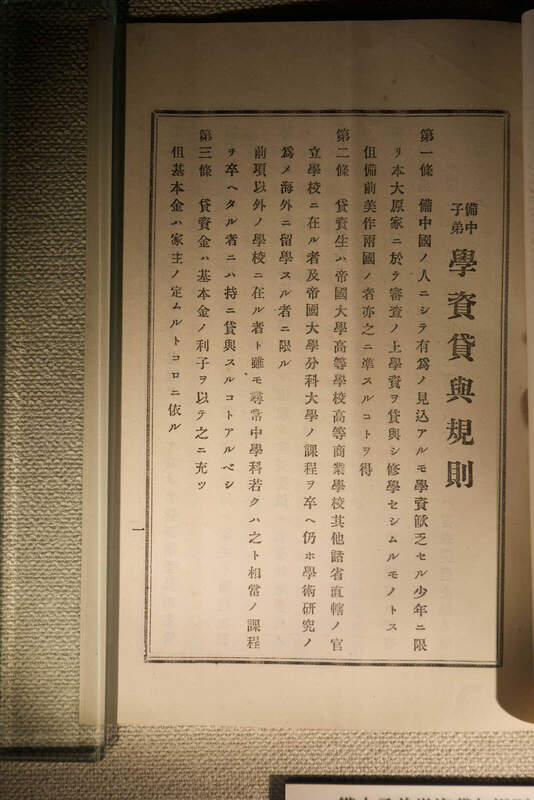 備中子弟 學資貸與規則
第一條 備中國ノ人ニシテ有爲ノ見込アルモ學資歉乏セル少年ニ限
リ本大原家ニ於テ審査ノ上學資ヲ貸與シ修學セシムルモノトス
但備前美作兩國ノ者亦之ニ準スルコトヲ得
第二條 貸資生ハ帝國大學高等學校高等商業學校其他諸省直轄ノ官
立學校ニ在ル者及帝國大學分科大學ノ課程ヲ卒ヘ仍ホ學術研究ノ
爲メ海外ニ留學スル者ニ限ル
前項以外ノ學校ニ在ル者ト雖モ尋常中學科若クハ之ト相當ノ課程
ヲ卒ヘタル者ニハ持ニ貸與スルコトアルベシ
第三條 貸資金ハ基本金ノ利子ヲ以テ之ニ充ツ
但基本金ハ家主ノ定ムルトコロニ依ル
一